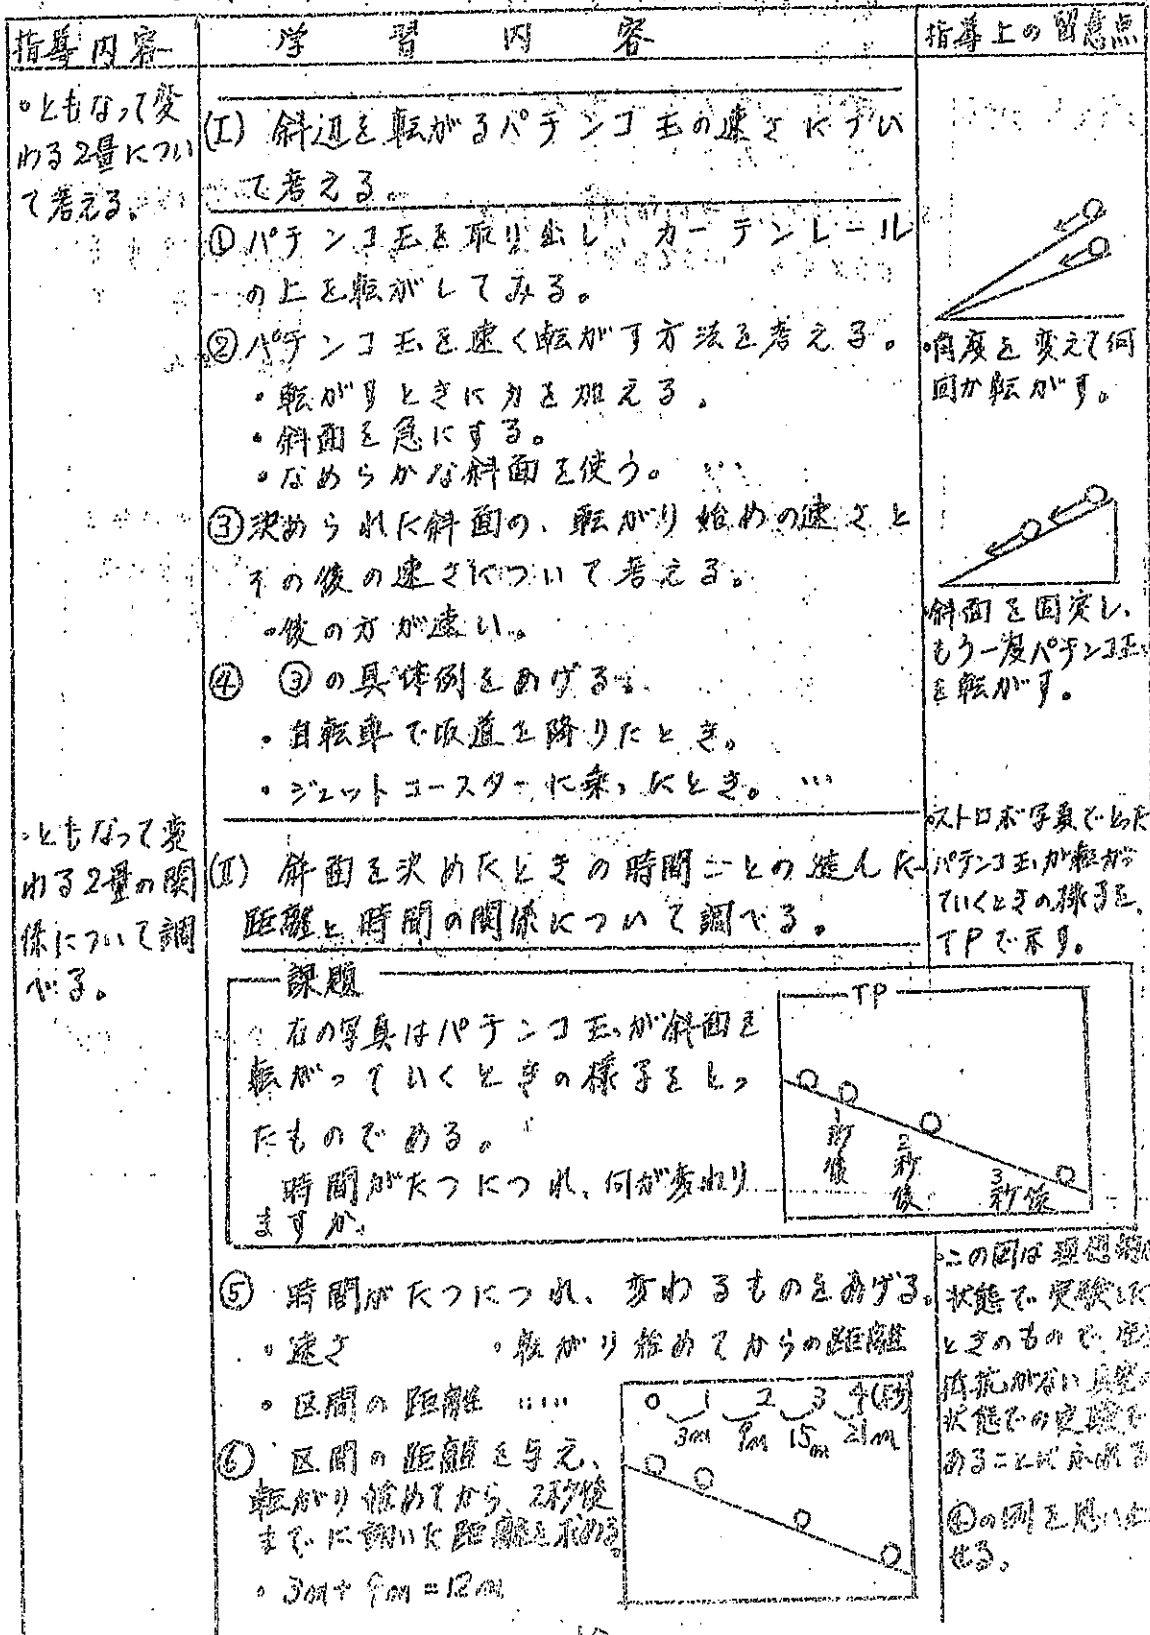 指導内容
学習内容
指導上の留意点
・ともなって変
わる2量につい
て考える。
(I) 斜辺を転がるパチンコ玉の速さについ
て考える。
①パチンコ玉を取り出し、カーテンレール
の上を転がしてみる。
②パチンコ玉を速く転がす方法を考える。
・転がすときに力を加える。
・斜面を急にする。
・なめらかな斜面を使う。…
③決められた斜面の、転がり始めの速さと
その後の速さについて考える。
・後の方が速い。
④ ③の具体例をあげる。
・自転車で坂道を降りたとき。
・ジェットコースターに乗ったとき。…
・角度を変えて何
回か転がす。
・斜面を固定し、
もう一度パチンコ玉
を転がす。
・ともなって変
わる2量の関
係について調
べる。
(II) 斜面を決めたときの時間ごとの進んだ
距離と時間の関係について調べる。
・ストロボ写真でとった
パチンコ玉が転がっ
ていくときの様子を、
TPで示す。
課題
右の写真はパチンコ玉が斜面を
転がっていくときの様子をとっ
たものである。
時間がたつにつれ、何が変わり
ますか。
TP
1秒後
2秒後
3秒後
⑤ 時間がたつにつれ、変わるものをあげる。
・速さ ・転がり始めてからの距離
・区間の距離 ……
⑥ 区間の距離を与え、
転がり始めてから、2秒後
までに動いた距離を求める。
・3m+9m=12m
0 1 2 3 4(秒)
3m 9m 15m 21m
・この図は理想的な
状態で実験した
ときのもので、空気
抵抗がない真空の
状態での実験で
あることにふれる
④の例を思い出
せる。